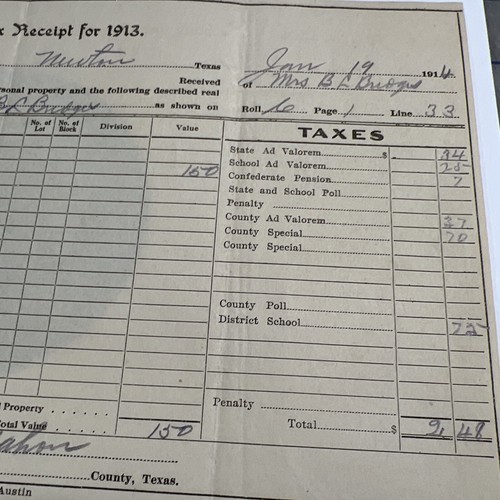 x Receipt for 1913.
Newton Texas Jan 19 1914
Received of Mrs B L Bridges
rsonal property and the following described real
B L Bridges as shown on Roll 6 Page 1 Line 33
No. of Lot No. of Block Division Value
TAXES
State Ad Valorem $ 24
150 School Ad Valorem 25
Confederate Pension 7
State and School Poll
Penalty
County Ad Valorem 37
County Special 70
County Special
County Poll
District School 75
l Property
Penalty
otal Value 150 Total $ 2 48
County, Texas.
Austin